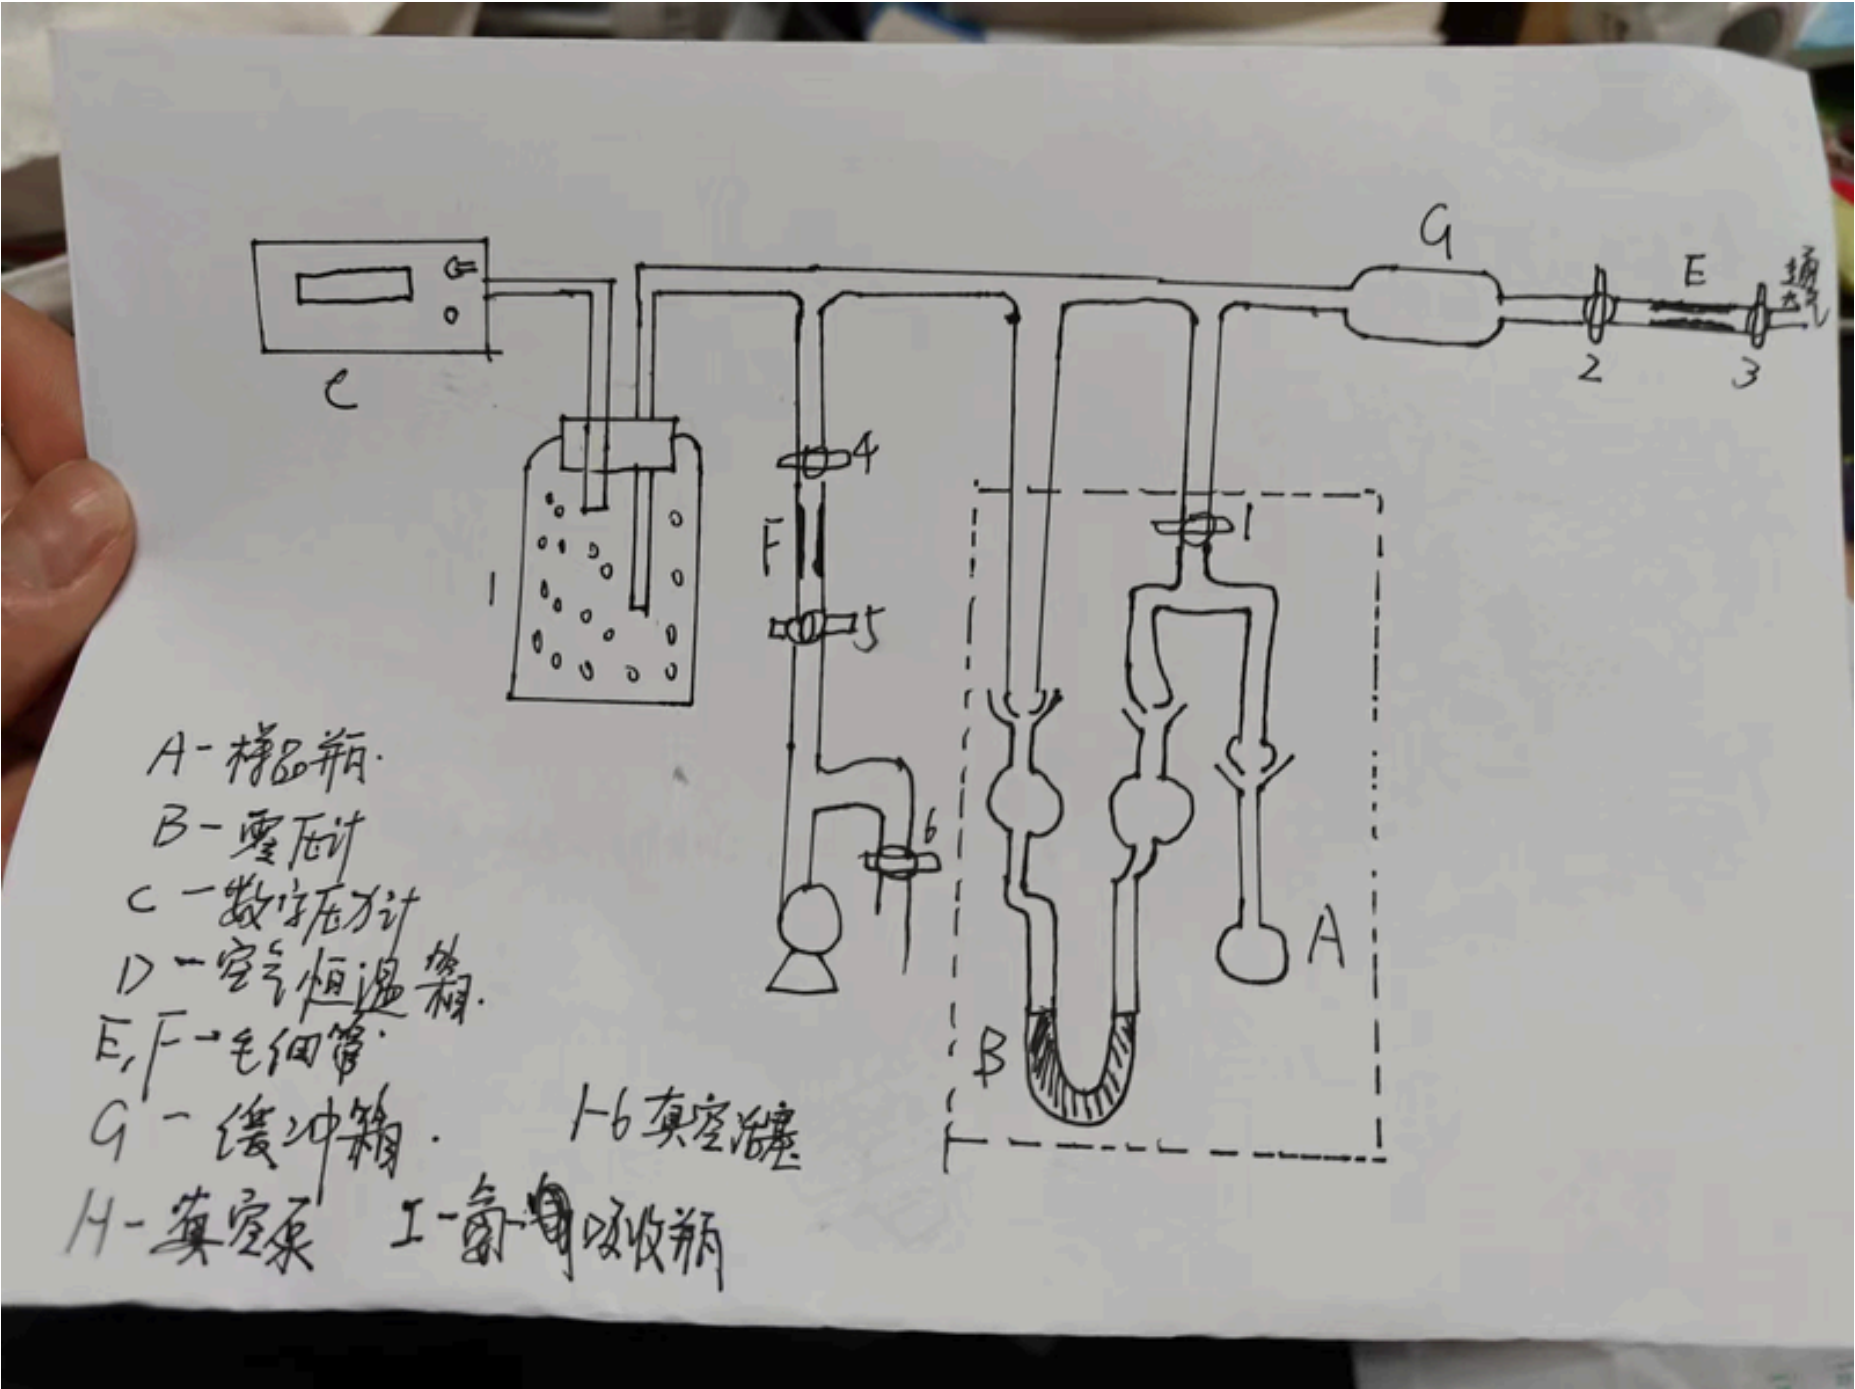 G
E
通大气
C
2
3
4
F
1
5
1
6
A
B
A-样品瓶.
B-零压计
C-数字压力计
D-空气恒温箱.
E,F-毛细管
G-缓冲箱.
1-6真空活塞
H-真空泵
I-氨吸收瓶